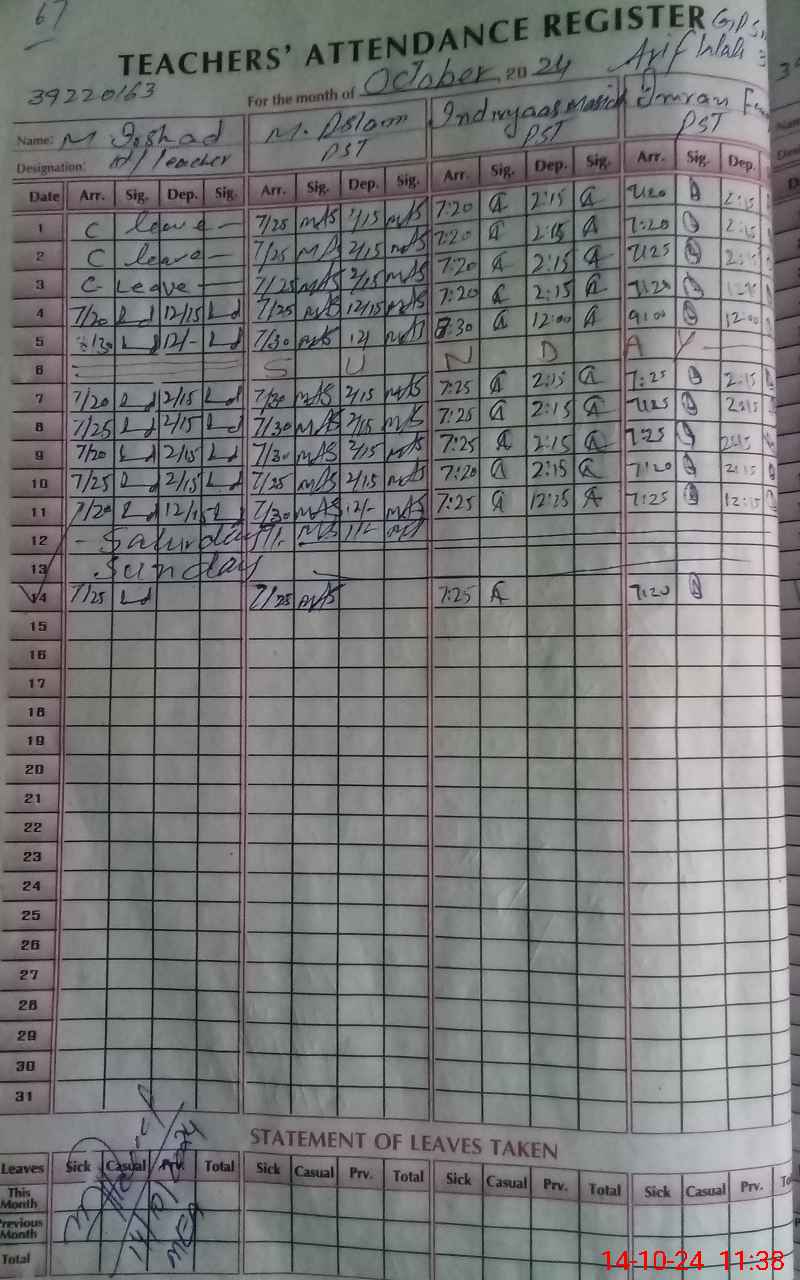 67
TEACHERS' ATTENDANCE REGISTER G,P,S,
39220163 For the month of October, 20 24 Arif
Name: M Irshad M. Aslam Indryaas Masich Imran
Designation: H/Teacher PST PST PST
Date Arr. Sig. Dep. Sig. Arr. Sig. Dep. Sig. Arr. Sig. Dep. Sig. Arr. Sig. Dep.
1 C leave 7/25 MAS 2/15 MAS 7:20 A 2:15 A 7:20 2:15
2 C leave 7/25 MAS 2/15 MAS 7:20 A 2:15 A 7:20 2:15
3 C Leave 7/25 MAS 2/15 MAS 7:20 A 2:15 A 7:25 2:15
4 7/20 12/15 7/25 MAS 12/15 MAS 7:20 A 2:15 A 7:20
5 12/- 7/30 MAS 12/ MAS 8:30 A 12:00 A 9:00 12:00
6 S U N D A Y
7 7/20 2/15 7/30 MAS 2/15 MAS 7:25 A 2:15 A 7:25 2:15
8 7/25 2/15 7/30 MAS 2/15 MAS 7:25 A 2:15 A 7:25 2:15
9 7/20 2/15 7/30 MAS 2/15 MAS 7:25 A 2:15 A 7:25 2:15
10 7/25 2/15 7/25 MAS 2/15 MAS 7:20 A 2:15 A 7:20 2:15
11 7/20 12/15 7/30 MAS 12/- MAS 7:25 A 12:15 A 7:25 12:15
12 - Saturday
13 Sunday
14 7/25 7/25 MAS 7:25 A 7:20
15
16
17
18
19
20
21
22
23
24
25
26
27
28
29
30
31
STATEMENT OF LEAVES TAKEN
Leaves Sick Casual Total Sick Casual Prv. Total Sick Casual Prv. Total Sick Casual Prv.
This Month
Previous Month
Total
14/10/2024
MEA
14-10-24 11:38